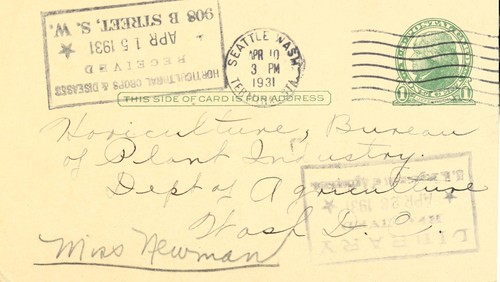 908 B STREET, S. W.
★ APR 15 1931 ★
RECEIVED
HORTICULTURAL CROPS & DISEASES
SEATTLE WASH.
APR 10
3 PM
1931
THIS SIDE OF CARD IS FOR ADDRESS
Horiculture, Bureau
of Plant Industry.
Dept of Agriculture
Wash D. C.
Miss Newman
LIBRARY
RECEIVED
★ APR 23 1931 ★